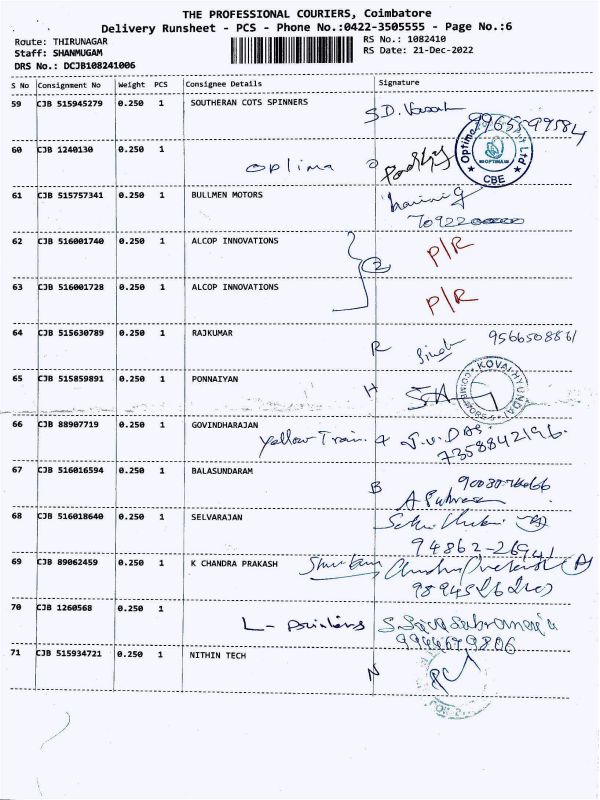 THE PROFESSIONAL COURIERS, Coimbatore
Delivery Runsheet - PCS - Phone No.:0422-3505555 - Page No.:6
Route: THIRUNAGAR
RS No.: 1082410
Staff: SHANMUGAM
RS Date: 21-Dec-2022
DRS No.: DCJB108241006
S No Consignment No Weight PCS Consignee Details Signature
59 CJB 515945279 0.250 1 SOUTHERAN COTS SPINNERS S.D.
60 CJB 1240130 0.250 1 optima
Optima Pvt Ltd CBE
61 CJB 515757341 0.250 1 BULLMEN MOTORS
62 CJB 516001740 0.250 1 ALCOP INNOVATIONS P/R
2
63 CJB 516001728 0.250 1 ALCOP INNOVATIONS P/R
64 CJB 515630789 0.250 1 RAJKUMAR R 9566508861
65 CJB 515859891 0.250 1 PONNAIYAN H
KOVAI HYUNDAI
66 CJB 88907719 0.250 1 GOVINDHARAJAN
Yellow Train 7358842196.
67 CJB 516016594 0.250 1 BALASUNDARAM B
68 CJB 516018640 0.250 1 SELVARAJAN
94862-26941
69 CJB 89062459 0.250 1 K CHANDRA PRAKASH
70 CJB 1260568 0.250 1
L- Printers S. Sivasubramania
9944679806
71 CJB 515934721 0.250 1 NITHIN TECH N